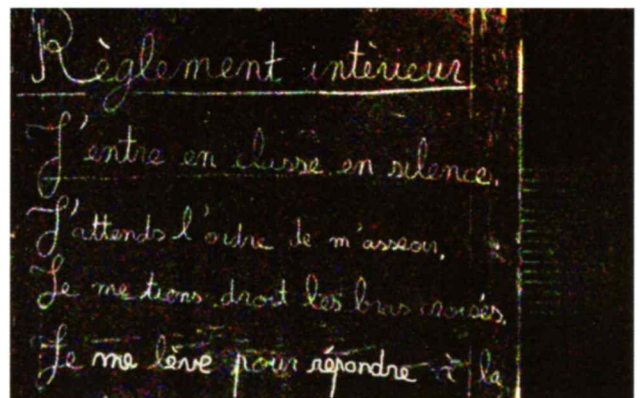 Règlement intérieur
J'entre en classe en silence.
J'attends l'ordre de m'asseoir.
Je me tiens droit les bras croisés.
Je me lève pour répondre à la